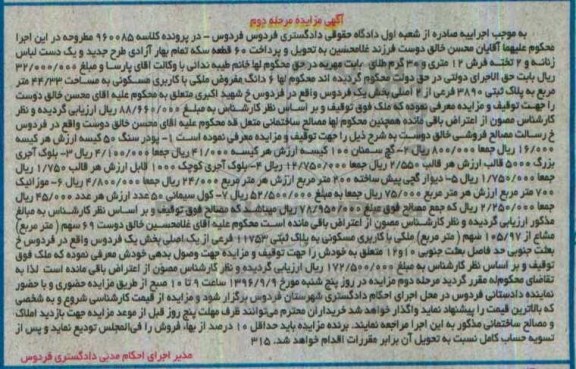 آگهی مزایده مرحله دوم
به موجب اجراییه صادره از شعبه اول دادگاه حقوقی دادگستری فردوس فردوس - در پرونده کلاسه ۹۶۰۰۸۵ مطروحه در این اجرا
محکوم علیهما آقایان محسن خالق دوست فرزند غلامحسین به تحویل و پرداخت ۶۰ قطعه سکه تمام بهار آزادی طرح جدید و یک دست لباس
زنانه و ۲ تخته فرش ۱۲ متری و ۳۰ گرم طلای بابت مهریه در حق محکوم لها خانم طیبه ندائی با وکالت آقای پارسا و مبلغ ۳۲/۰۰۰/۰۰۰
ریال بابت حق الاجرای دولتی در حق دولت محکوم گردیده اند محکوم لها ۶ دانگ مفروض ملکی با کاربری مسکونی به مساحت ۴۴/۳۳ متر
مربع به پلاک ثبتی ۳۸۹۰ فرعی از ۲ اصلی بخش یک فردوس واقع در فردوس خ شهید اکبری متعلق به محکوم علیه آقای محسن خالق دوست
را جهت توقیف و مزایده معرفی نموده که ملک فوق توقیف و بر اساس نظر کارشناس به مبلغ ۸۸/۶۶۰/۰۰۰ ریال ارزیابی گردیده و نظر
کارشناس مصون از اعتراض باقی مانده همچنین محکوم لها مصالح ساختمانی متعلق به محکوم علیه آقای محسن خالق دوست واقع در فردوس
خ رسالت مصالح فروشی خالق دوست به شرح ذیل را جهت توقیف و مزایده معرفی نموده است ۱- پودر سنگ ۵۰ کیسه ارزش هر کیسه
۱۶/۰۰۰ ریال جمعا ۸۰۰/۰۰۰ ریال ۲- گچ سمنان ۱۰۰ کیسه ارزش هر کیسه ۴۱/۰۰۰ ریال جمعا ۴/۱۰۰/۰۰۰ ریال ۳- بلوک آجری
بزرگ ۵۰۰۰ قالب ارزش هر قالب ۲/۵۵۰ ریال جمعا ۱۲/۷۵۰/۰۰۰ ریال ۴- بلوک آجری کوچک ۱۰۰۰ قالب ارزش هر قالب ۱/۷۵۰ ریال
جمعا ۱/۷۵۰/۰۰۰ ریال ۵- دیوار گچی پیش ساخته ۲۰۰ متر مربع ارزش هر متر مربع ۲۴/۰۰۰ ریال جمعا ۴/۸۰۰/۰۰۰ ریال ۶- موزائیک
۷۰۰ متر مربع ارزش هر متر مربع ۷۵/۰۰۰ ریال جمعا به مبلغ ۵۲/۵۰۰/۰۰۰ ریال ۷- کول سیمانی ۵۰ عدد ارزش هر عدد ۴۵/۰۰۰ ریال
جمعا ۲/۲۵۰/۰۰۰ ریال که جمع مصالح فوق مبلغ ۷۸/۹۵۰/۰۰۰ ریال میباشد که مصالح فوق توقیف و بر اساس نظر کارشناس به مبالغ
مذکور ارزیابی گردیده و نظر کارشناس مصون از اعتراض باقی مانده است محکوم علیه آقای غلامحسین خالق دوست ۶۹ سهم (متر مربع)
مشاع از ۱۰۵/۹۷ سهم (متر مربع) ملکی با کاربری مسکونی به پلاک ثبتی ۱۱۷۵۳ فرعی از یک اصلی بخش یک فردوس واقع در فردوس خ
بعثت جنوبی حد فاصل بعثت جنوبی ۱۰ و ۱۲ متعلق به خودش را جهت توقیف و مزایده جهت وصول بدهی خودش معرفی نموده که ملک فوق
توقیف و بر اساس نظر کارشناس به مبلغ ۱۷۲/۵۰۰/۰۰۰ ریال ارزیابی گردیده و نظر کارشناس مصون از اعتراض باقی مانده است لذا به
تقاضای محکوم‌له مقرر گردید مرحله دوم مزایده در روز پنج شنبه مورخ ۱۳۹۶/۹/۹ ساعت ۹ تا ۱۰ صبح از طریق مزایده حضوری و با حضور
نماینده دادستانی فردوس در محل اجرای احکام دادگستری شهرستان فردوس برگزار شود و مزایده از قیمت کارشناسی شروع و به شخصی
که بالاترین قیمت را پیشنهاد نماید واگذار خواهد شد خریداران محترم می‌توانند ظرف مهلت پنج روز قبل از موعد مزایده جهت بازدید املاک
و مصالح ساختمانی مذکور به این اجرا مراجعه نمایند. برنده مزایده باید حداقل ۱۰ درصد از بهاء فروش را فی‌المجلس تودیع نماید و پس از
تسویه حساب کامل نسبت به تحویل آن برابر مقررات اقدام خواهد شد. ۳۱۵
مدیر اجرای احکام مدنی دادگستری فردوس